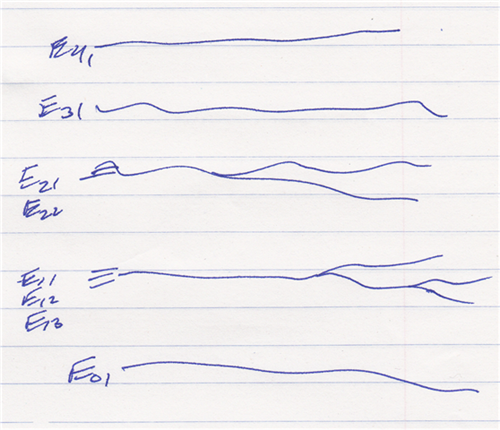 E41
E31
E21
E22
E11
E12
E13
E01